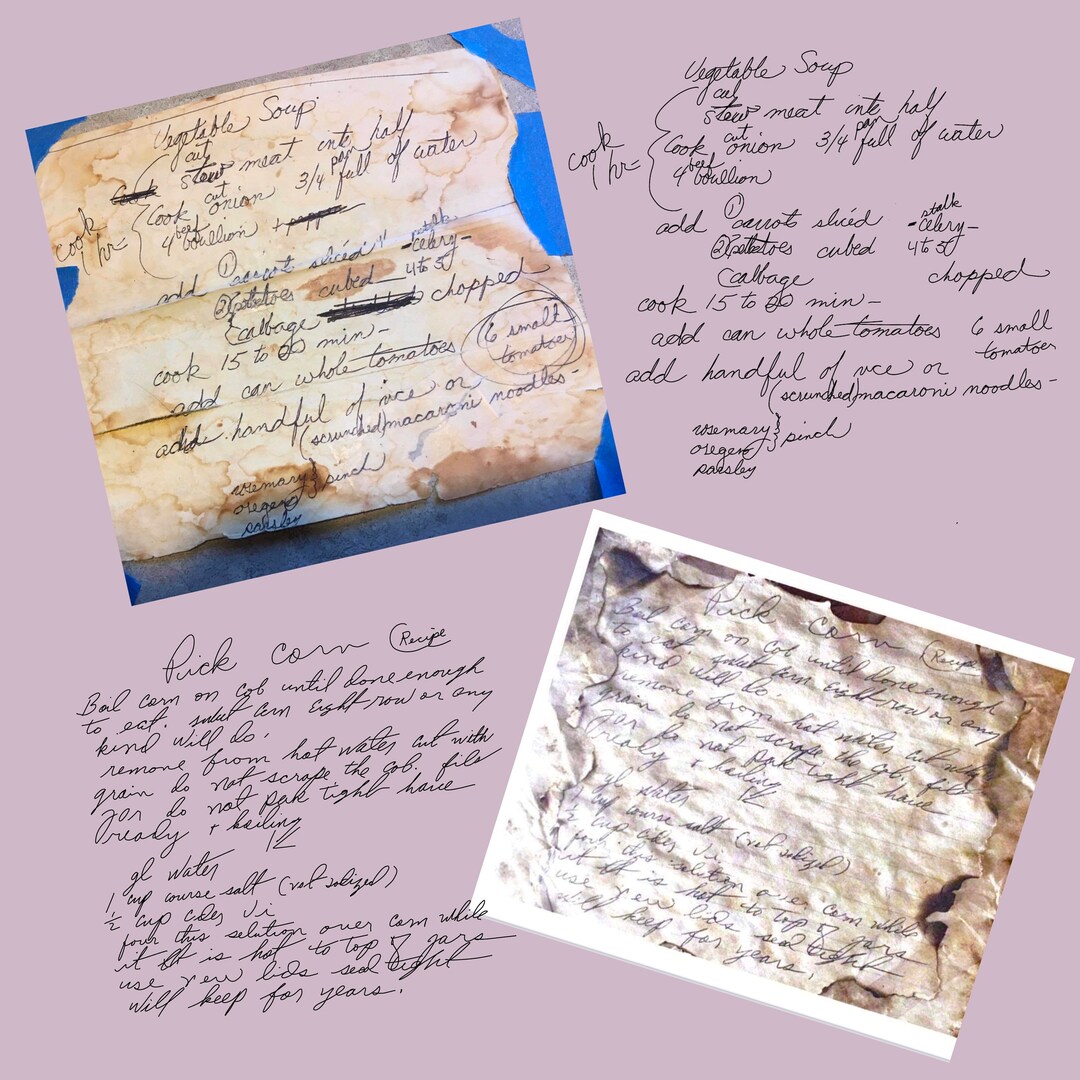 Vegetable Soup
cut
stew meat into half
cut pan
Cook onion 3/4 full of water
cook
1 hr=
beef
4 boullion +
add ① carrot slicéd -celery- stalk
② potatoes cubed 4 to 5
Cabbage chopped
cook 15 to 20 min-
add can whole tomatoes 6 small
tomatoes
add handful of rice or
(scrunched) macaroni noodles-
rosemary
oregeno } pinch
parsley
Vegetable Soup
cut
stew meat into half
cut pan
Cook onion 3/4 full of water
cook
1 hr=
beef
4 boullion
add ① carrot slicéd -celery- stalk
② potatoes cubed 4 to 5
Cabbage chopped
cook 15 to 20 min-
add can whole tomatoes 6 small
tomatoes
add handful of rice or
(scrunched) macaroni noodles-
rosemary
oregeno } pinch
parsley
Pick corn Recipe
Boil corn on cob until done enough
to eat. sweet corn Eight row or any
kind will do.
remove from hot water cut with
grain do not scrape the cob. fill
jar do not pack tight have
ready + boiling
1/2
gl water
1 cup course salt (not iodized)
1/2 cup cider Vi
pour this solution over corn while
it is hot to top of jars
use new lids seal tight
will keep for years.
Pick corn Recipe
Boil corn on cob until done enough
to eat. sweet corn Eight row or any
kind will do.
remove from hot water cut with
grain do not scrape the cob. fill
jar do not pack tight have
ready + boiling
1/2
gl water
1 cup course salt (not iodized)
1/2 cup cider Vi
pour this solution over corn while
it is hot to top of jars
use new lids seal tight
will keep for years.